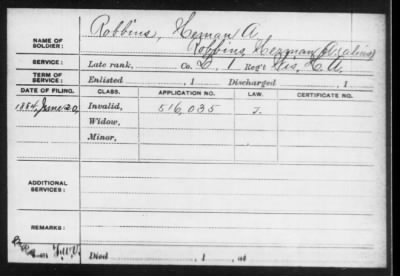 Robbins, Heman A.
NAME OF SOLDIER: Robbins, Hezman A. (alias)
SERVICE: Late rank, Co. D, 1 Reg't Wis. H.A.
TERM OF SERVICE: Enlisted , 1 Discharged , 1
DATE OF FILING. CLASS. APPLICATION NO. LAW. CERTIFICATE NO.
1884, June 20, Invalid, 516,035
Widow,
Minor,
ADDITIONAL SERVICES:
REMARKS:
Died , 1 , at